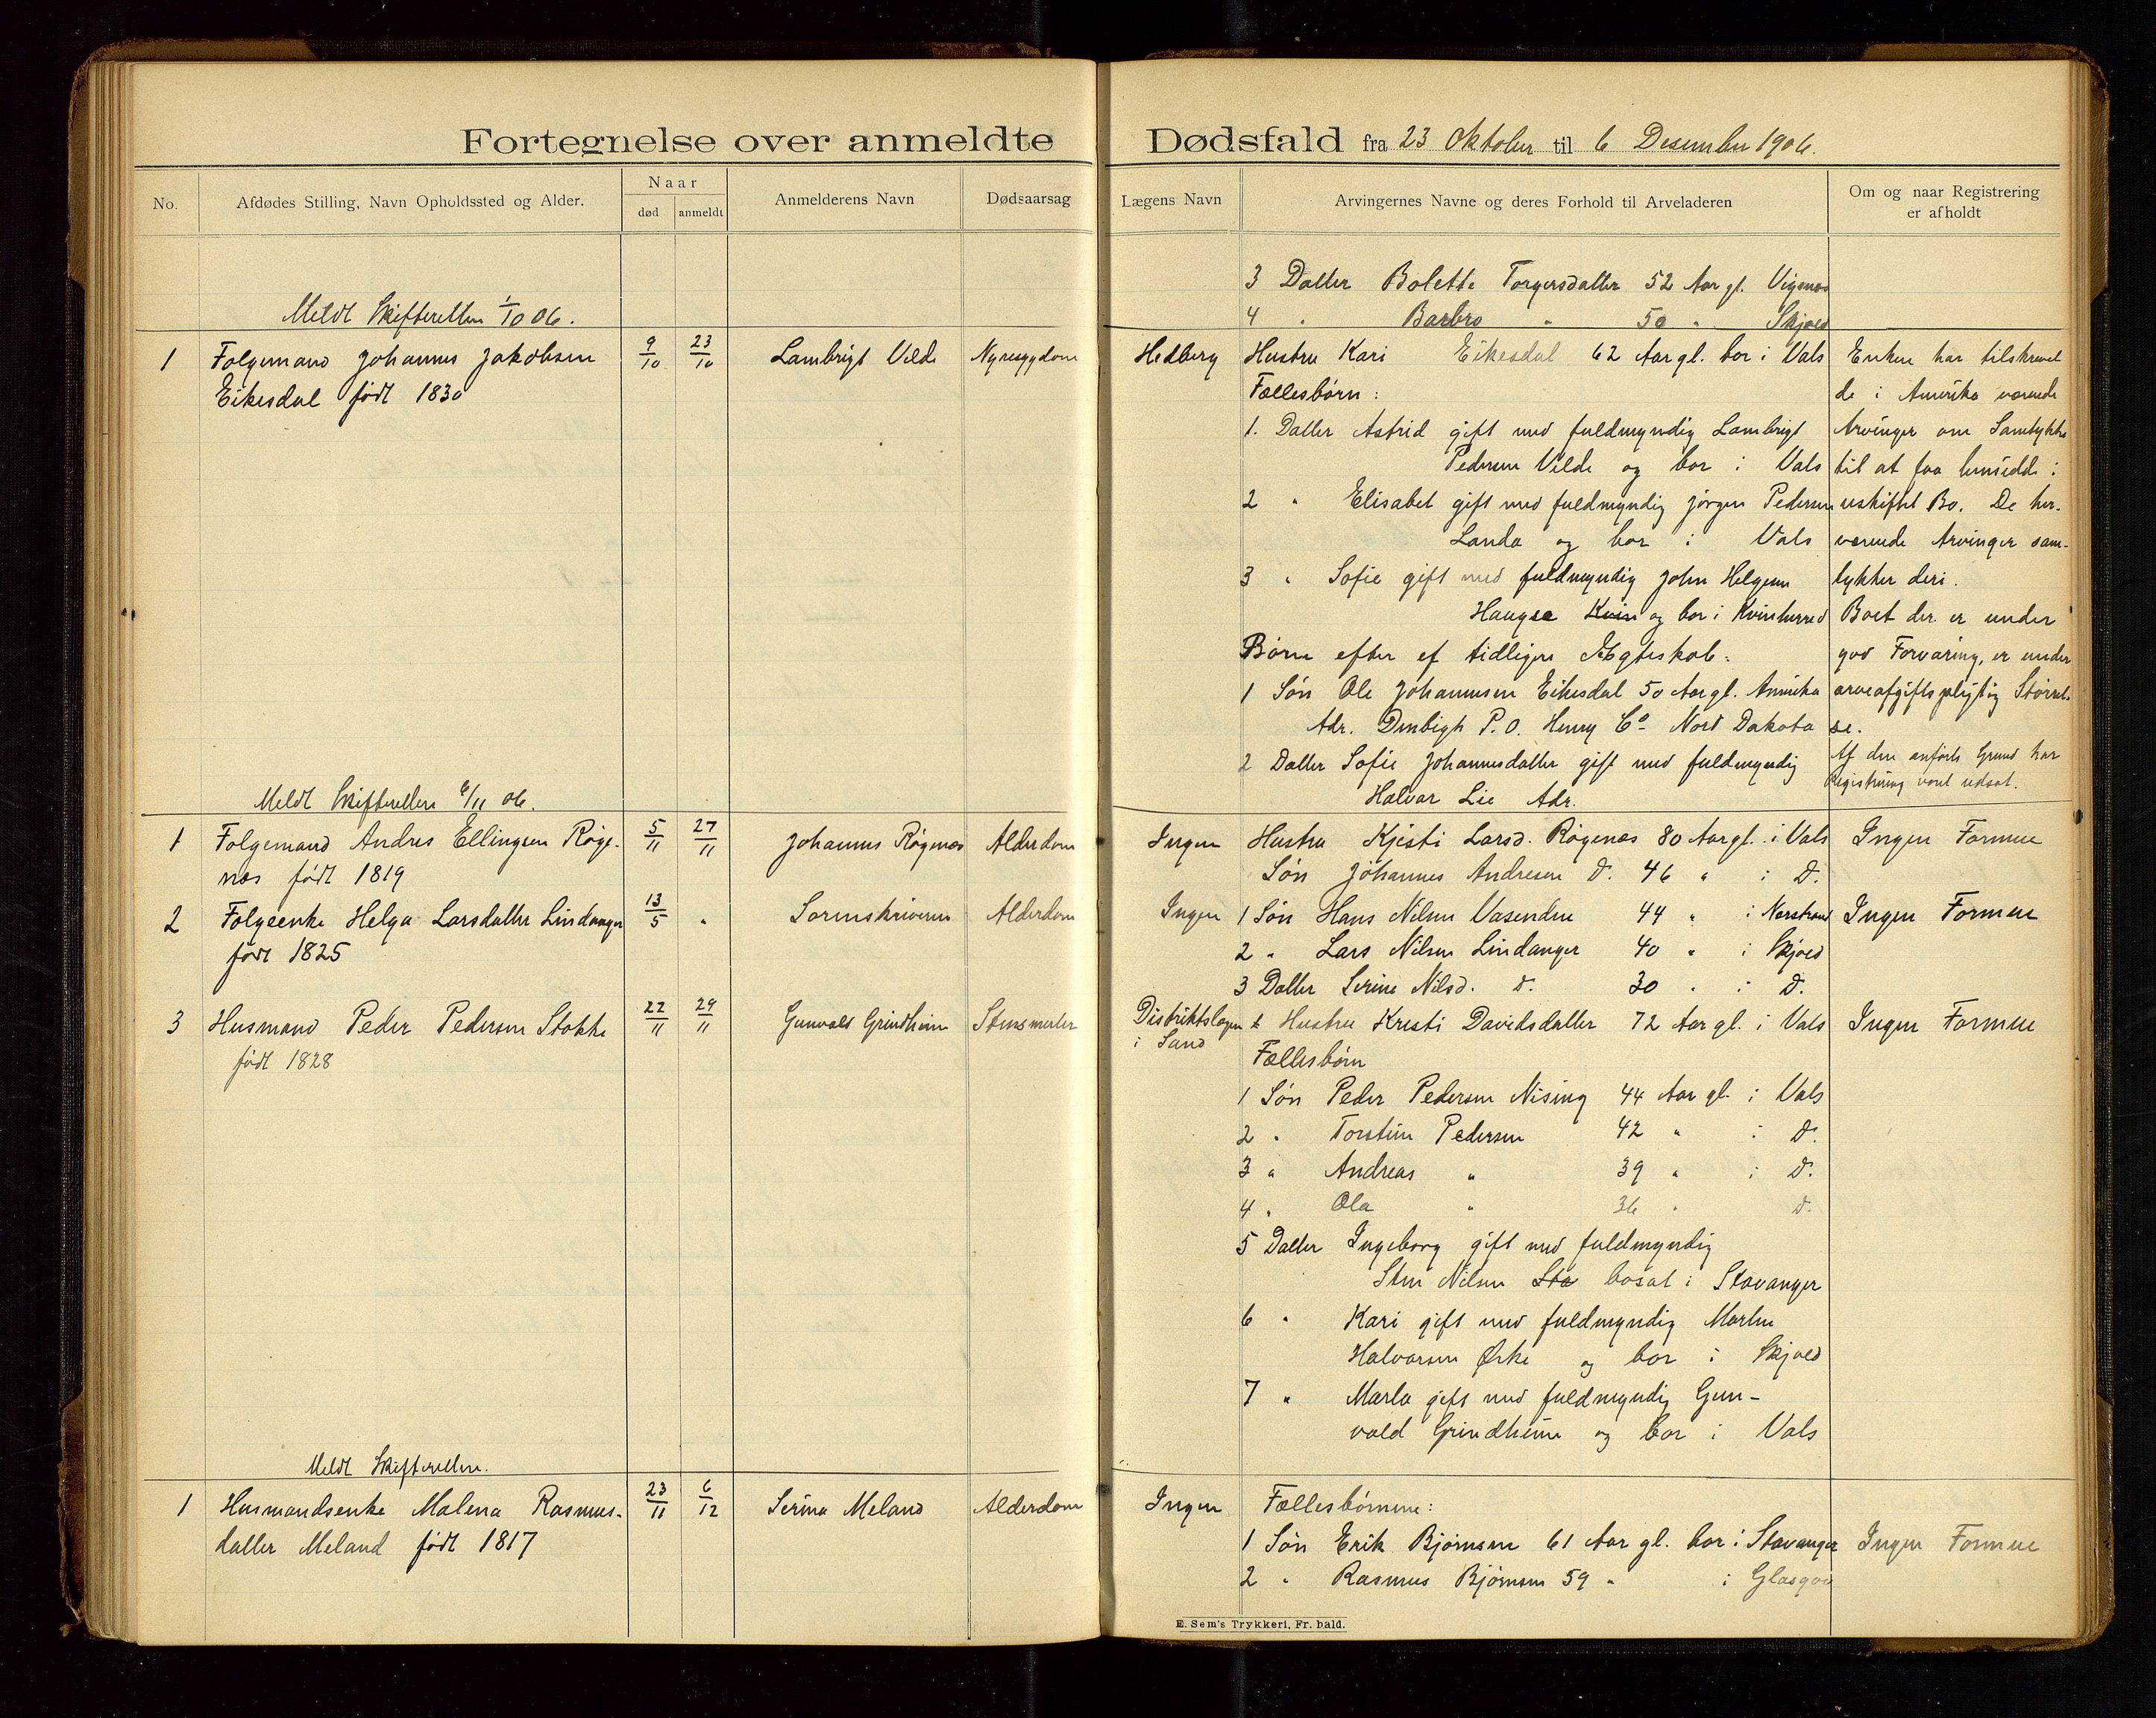 Fortegnelse over anmeldte Dødsfald fra 23 Oktober til 6 Desember 1906.
No.
Afdødes Stilling, Navn Opholdssted og Alder.
Naar
død anmeldt
Anmelderens Navn
Dødsaarsag
Lægens Navn
Arvingernes Navne og deres Forhold til Arveladeren
Om og naar Registrering
er afholdt
3 Datter Bolette Torgersdatter 52 Aar gl. Vigenes
4 " Barbro " 50 " Skjold
Meldt Skifteretten 1/10 06.
1 Folgemand Johannes Jakobsen
Eikesdal født 1830
9/10 23/10 Lambrigt Velde Nyresygdom Hedberg
Hustru Kari Eikesdal 62 Aar gl. bor i Vats
Fællesbørn:
1. Datter Astrid gift med fuldmyndig Lambrigt
Pedersen Velde og bor i Vats
2 " Elisabet gift med fuldmyndig Jörgen Pedersen
Landa og bor i Vats
3 " Sofie gift med fuldmyndig John Helgesen
Haugse Kvin og bor i Kvinherred
Børn efter et tidligere Ægteskab:
1 Søn Ole Johannesen Eikesdal 50 Aar gl. Amerika
Adr. Denbigh P.O. Henry Co Nord Dakota
2 Datter Sofie Johannesdatter gift med fuldmyndig
Halvar Lie Adr.
Enken har tilskrevet
de i Amerika værende
Arvinger om Samtykke
til at faa hensidde i
uskiftet Bo. De her-
værende Arvinger sam-
tykker deri.
Boet der er under
god Forvaring, er under
arveafgiftspligtig Størrel-
se.
Af den anførte Grund har
Registrering vært udsat.
Meldt Skifteretten 6/11 06.
1 Folgemand Andres Ellingsen Røge-
nes født 1819
5/11 27/11 Johannes Røgenes Alderdom Ingen
Hustru Kjesti Larsd. Røgenes 80 Aar gl. i Vats
Søn Johannes Andresen D. 46 " i D.
Ingen Formue
2 Folgeenke Helga Larsdatter Lindanger
født 1825
13/5 " Sorenskriveren Alderdom Ingen
1 Søn Hans Nilsen Vasendene 44 " i Nerstrand
2 " Lars Nilsen Lindanger 40 " i Skjold
3 Datter Serine Nilsd. D. 30 " i D.
Ingen Formue
3 Husmand Peder Pedersen Stokke
født 1828
22/11 29/11 Gunvald Grindheim Stensmerter
Distriktslægen
i Sand
Hustru Kresti Davidsdatter 72 Aar gl. i Vats
Fællesbørn
1 Søn Peder Pedersen Nising 44 Aar gl. i Vats
2 " Torstein Pedersen 42 " i D.
3 " Andreas " 39 " i D.
4 " Ola " 36 " D.
5 Datter Ingeborg gift med fuldmyndig
Sten Nilsen Sta bosat i Stavanger
6 " Kari gift med fuldmyndig Marten
Halvorsen Ørke og bor i Skjold
7 " Marta gift med fuldmyndig Gun-
vald Grindheim og bor i Vats
Ingen Formue
Meldt Skifteretten.
1 Husmandsenke Malena Rasmus-
datter Meland født 1817
23/11 6/12 Serina Meland Alderdom Ingen
Fællesbørnene:
1 Søn Erik Bjørnsen 61 Aar gl. bor i Stavanger
2 " Rasmus Bjørnsen 59 " i Glasgow
Ingen Formue
E. Sem's Trykkeri, Fr. hald.